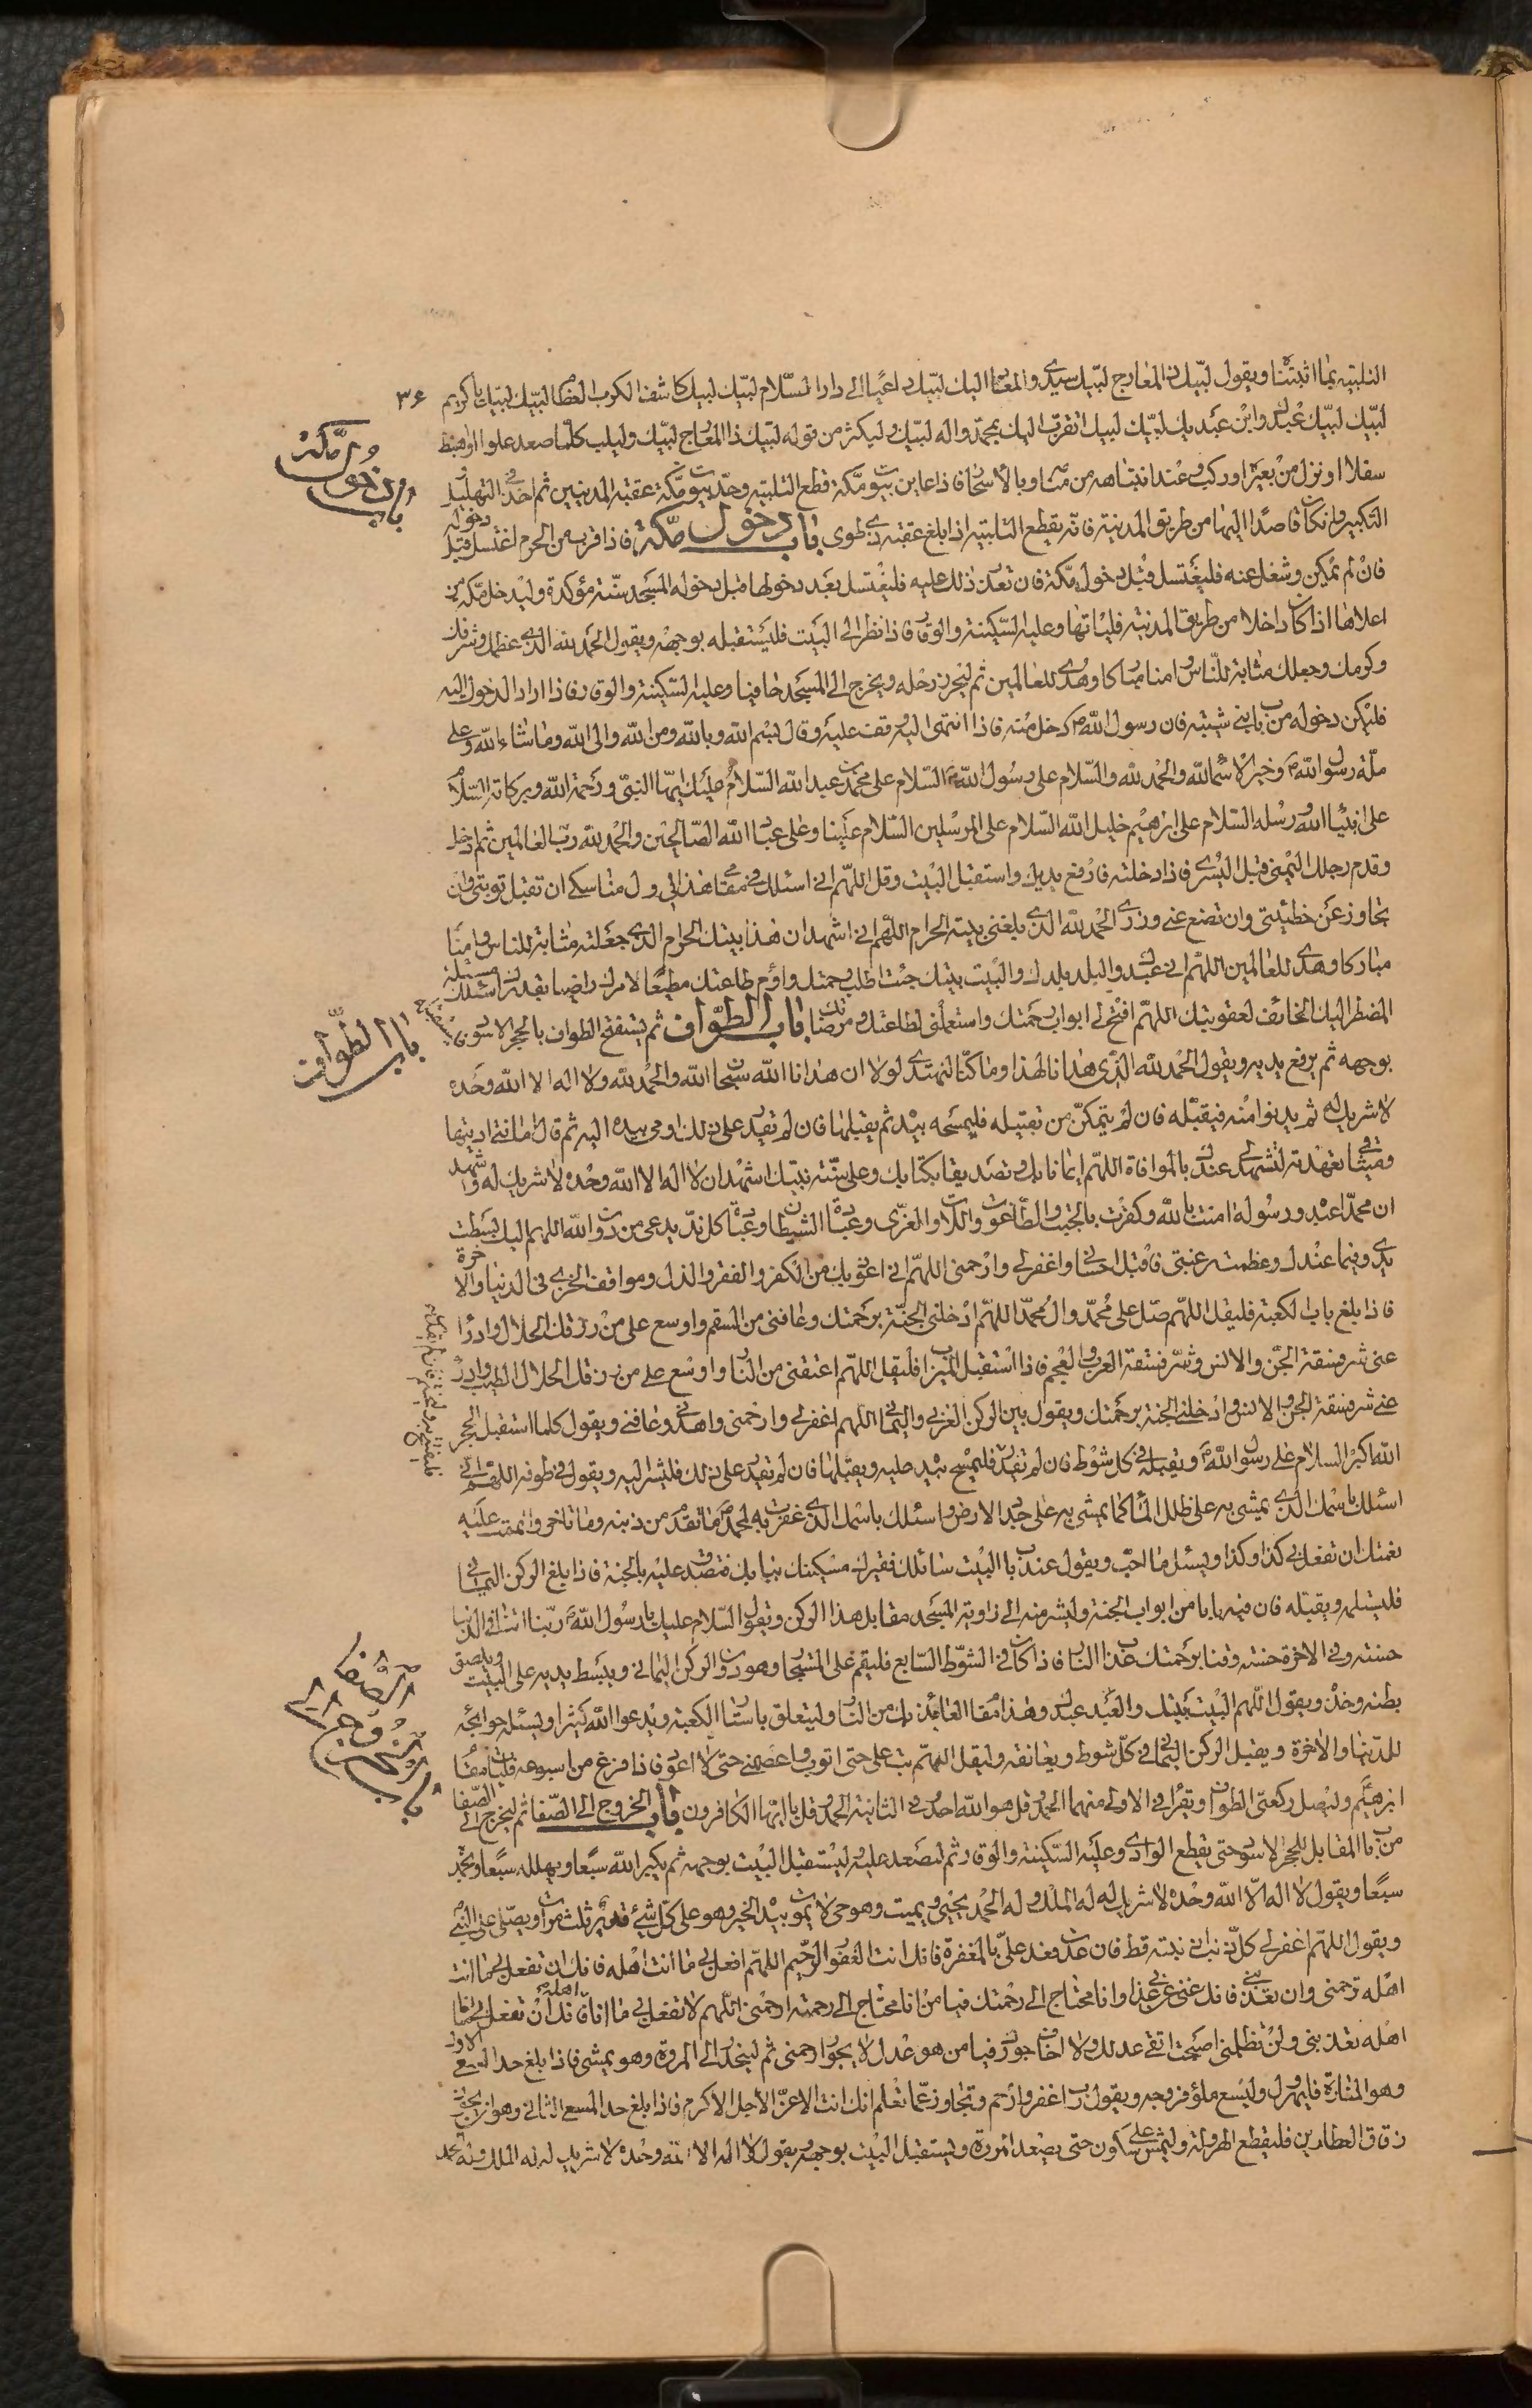 التلبيه بما اثبتناه ويقول لبيك ذا المعارج لبيك لبيك سيدى والمعاد اليك لبيك داعيا الى دار السلام لبيك لبيك كاشف الكرب العظام لبيك لبيك يا كريم
٣۶
لبيك لبيك عبدك وابن عبديك لبيك لبيك اتقرب اليك بمحمد واله لبيك وليكثر من قوله لبيك ذا المعارج لبيك وليلب كلما صعد علوا او هبط
باب دخول مكة
سفلا او نزل من بعيره او ركب وعند انتباهه من منامه وبالاسحار فاذا عاين بيوت مكة قطع التلبيه وحد بيوت مكة عقبة المدنيين ثم اخذ فى التهليل و
التكبير وان كان قاصدا اليها من طريق المدينة فانه يقطع التلبيه اذا بلغ عقبة ذى طوى باب دخول مكة فاذا قرب من الحرم اغتسل قبل دخوله
فان لم يمكن وشغل عنه فليغتسل قبل دخول مكة فان تعذر ذلك عليه فليغتسل بعد دخولها قبل دخوله المسجد سنة مؤكدة وليدخل مكة من
اعلاها اذا كان داخلا من طريق المدينة فلياتها وعليه السكينة والوقار فاذا نظر الى البيت فليستقبله بوجهه ويقول الحمد لله الذى عظمك وشرفك
وكرمك وجعلك مثابة للناس وامنا مباركا وهدى للعالمين ثم ليحرز رحله ويخرج الى المسجد حافيا وعليه السكينة والوقار فاذا اراد الدخول اليه
فليكن دخوله من باب بنى شيبه فان رسول الله دخل منه فاذا انتهى اليه وقف عليه وقال بسم الله وبالله ومن الله والى الله وما شاء الله وعلى
ملة رسول الله وخير الاسماء لله والحمد لله والسلام على رسول الله السلام على محمد بن عبد الله السلام عليك ايها النبى ورحمة الله وبركاته السلام
على انبياء الله ورسله السلام على ابرهيم خليل الله السلام على المرسلين السلام علينا وعلى عباد الله الصالحين والحمد لله رب العالمين ثم ادخل
وقدم رجلك اليمنى قبل اليسرى فاذا دخلته فارفع يديك واستقبل البيت وقل اللهم انى اسئلك فى مقامى هذا فى اول مناسكى ان تقبل توبتى وان
تجاوز عن خطيئتى وان تضع عنى وزرى الحمد لله الذى بلغنى بيته الحرام اللهم انى اشهد ان هذا بيتك الحرام الذى جعلته مثابة للناس وامنا
مباركا وهدى للعالمين اللهم انى عبدك والبلد بلدك والبيت بيتك جئت اطلب رحمتك واؤم طاعتك مطيعا لامرك راضيا بقدرك اسئلك مسئلة
المضطر اليك الخائف لعقوبتك اللهم افتح لى ابواب رحمتك واستعملنى لطاعتك ومرضاتك باب الطواف ثم يستفتح الطواف بالحجر الاسود يستقبله
باب الطواف
بوجهه ثم يرفع يديه ويقول الحمد لله الذى هدانا لهذا وما كنا لنهتدى لولا ان هدانا الله سبحان الله والحمد لله ولا اله الا الله وحده
لا شريك له ثم يدنوا منه فيقبله فان لم يتمكن من تقبيله فليمسحه بيده ثم يقبلها فان لم تقدر على ذلك اومى بيده اليه ثم قال امانتى اديتها
وميثاقى تعهدته لتشهد لى عندك بالموافاة اللهم ايمانا بك وتصديقا بكتابك وعلى سنة نبيك اشهد ان لا اله الا الله وحده لا شريك له واشهد
ان محمدا عبده ورسوله امنت بالله وكفرت بالجبت والطاغوت واللات والعزى وعبادة الشيطان وعبادة كل ند يدعى من دون الله اللهم اليك بسطت
يدى وفيما عندك وعظمت رغبتى فاقبل احسانى واغفر لى وارحمنى اللهم انى اعوذ بك من الكفر والفقر والذل ومواقف الخزى فى الدنيا والاخرة
فاذا بلغ باب الكعبة فليقل اللهم صل على محمد وال محمد اللهم ادخلنى الجنة برحمتك وعافنى من السقم واوسع على من رزقك الحلال وادرا
عنى شر فسقة الجن والانس وشر فسقة العرب والعجم فاذا استقبل الميزاب فليقل اللهم اعتقنى من النار واوسع على من رزقك الحلال الطيب وادرا
عنى شر فسقة الجن والانس وادخلنى الجنة برحمتك ويقول بين الركن الغربى واليمانى اللهم اغفر لى وارحمنى واهدنى وعافنى ويقول كلما استقبل الحجر
الله اكبر السلام على رسول الله ويقبله فى كل شوط فان لم تقدر فليمسح بيده عليه ويقبلها فان لم تقدر على ذلك فليشر اليه ويقول فى طوفه اللهم انى
اسئلك باسمك الذى يمشى به على ظلل الماء كما يمشى به على جدد الارض واسئلك باسمك الذى غفرت به لمحمد ما تقدم من ذنبه وما تاخر واتممت عليه
نعمتك ان تفعل بى كذا وكذا ويسئل ما احب ويقول عند باب البيت سائلك فقيرك مسكينك ببابك فتصدق عليه بالجنة فاذا بلغ الركن اليمانى
فليستلمه ويقبله فان فيه بابا من ابواب الجنة وليشر منه الى زاوية المسجد مقابل هذا الركن وتقول السلام عليك يا رسول الله ربنا اتنا فى الدنيا
حسنة وفى الاخرة حسنة وقنا برحمتك عذاب النار فاذا كان فى الشوط السابع فليقم على المستجار وهو دون الركن اليمانى ويبسط يديه على البيت ويلصق
بطنه وخده ويقول اللهم البيت بيتك والعبد عبدك وهذا مقام العائذ بك من النار وليتعلق باستار الكعبة ويدعوا الله كثيرا ويسئله حوائجه
للدنيا والاخرة ويقبل الركن اليمانى فى كل شوط ويعانقه وليقل اللهم تب على حتى اتوب واعصمنى حتى لا اعود فاذا فرغ من اسبوعه فليات مقام
ابرهيم وليصل ركعتى الطواف ويقرا فى الاولى منهما الحمد وقل هو الله احد وفى الثانية الحمد وقل يا ايها الكافرون باب الخروج الى الصفا ثم ليخرج الى الصفا
باب الخروج الى الصفا
من باب المقابل للحجر الاسود حتى يقطع الوادى وعليه السكينة والوقار ثم ليصعد عليه ليستقبل البيت بوجهه ثم يكبر الله سبعا ويهلله سبعا ويحمد
سبعا ويقول لا اله الا الله وحده لا شريك له له الملك وله الحمد يحيى ويميت وهو حى لا يموت بيده الخير وهو على كل شئ قدير ثلث مرات ويصلى على النبى
ويقول اللهم اغفر لى كل ذنب اذنبته قط فان عدت فعد على بالمغفرة فانك انت الغفور الرحيم اللهم افعل بى ما انت اهله فانك ان تفعل بى ما انت
اهله ترحمنى وان تعذبنى فانك غنى عن عذابى وانا محتاج الى رحمتك فيا من انا محتاج الى رحمته ارحمنى اللهم لا تفعل بى ما انا اهله فانك ان تفعل بى ما انا
اهله تعذبنى ولن تظلمنى اصبحت اتقى عدلك ولا اخاف جورك فيا من هو عدل لا يجور ارحمنى ثم لينحدر الى المروة وهو يمشى فاذا بلغ حد المسعى الاول
وهو المنارة فليهرول وليسع ملؤ فروجه ويقول رب اغفر وارحم وتجاوز عما تعلم انك انت الاعز الاجل الاكرم فاذا بلغ حد المسعى الثانى وهو ان يجوز
زقاق العطارين فليقطع الهرولة وليمش على سكون حتى يصعد المروة ويستقبل البيت بوجهه ويقول لا اله الا الله وحده لا شريك له له الملك وله الحمد